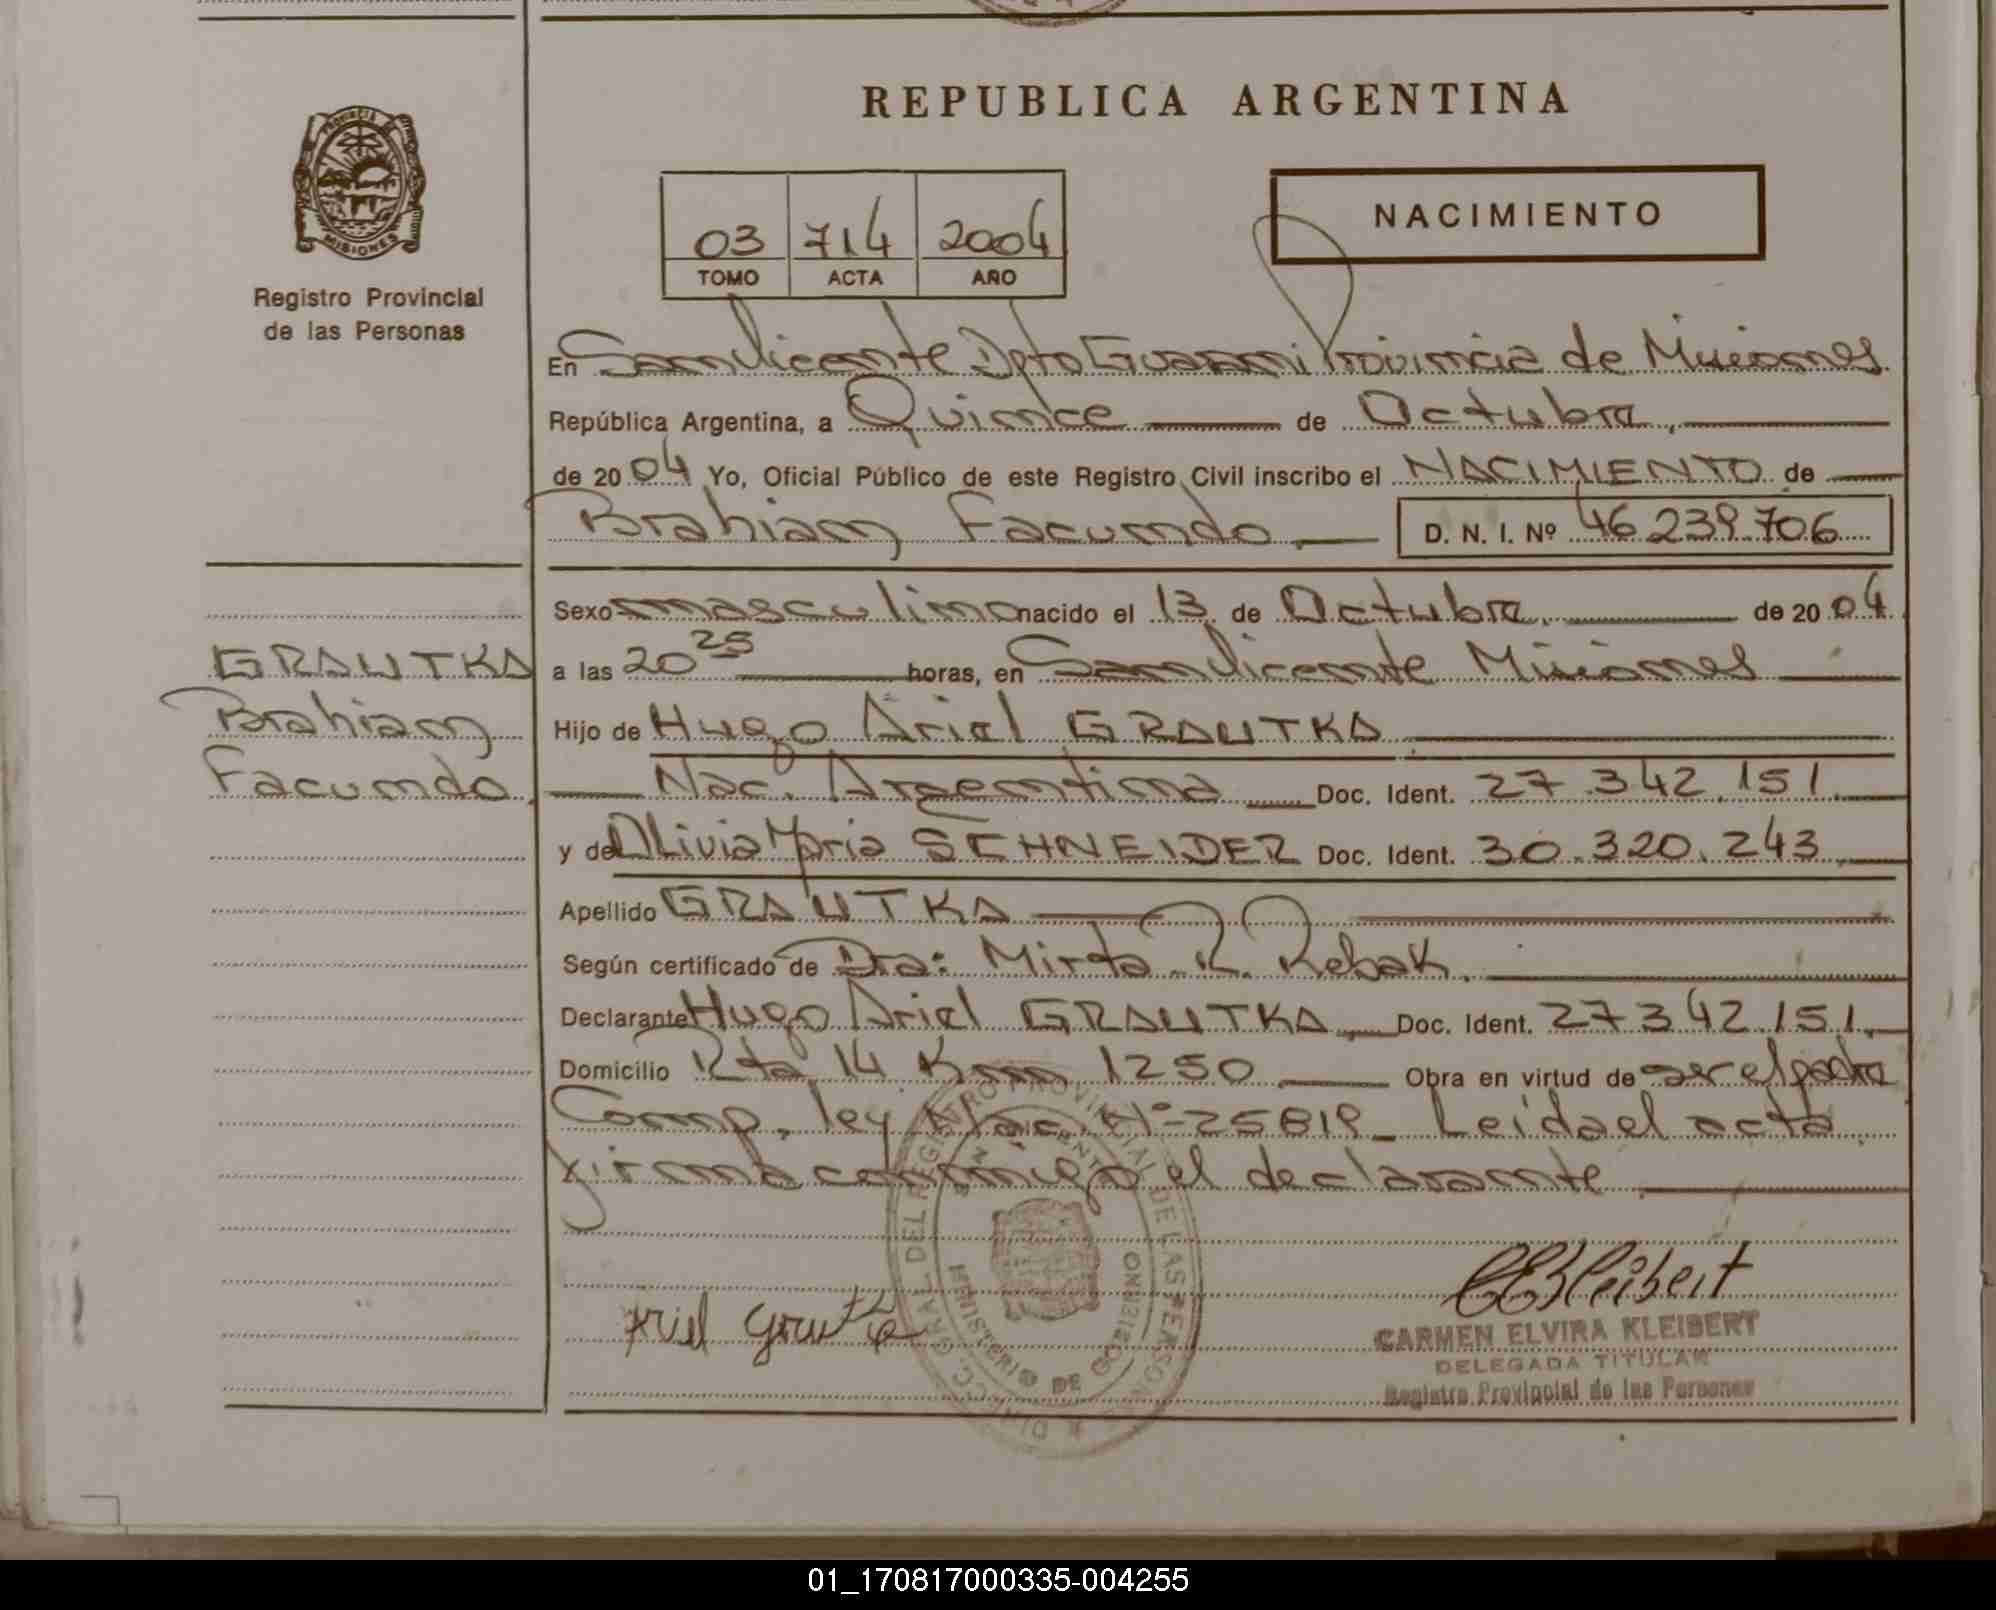 REPUBLICA ARGENTINA
PROVINCIA DE
MISIONES
Registro Provincial
de las Personas
03 714 2004
TOMO ACTA AÑO
NACIMIENTO
En San Vicente Dpto Guarani Provincia de Misiones
República Argentina, a Quince de Octubre,
de 2004 Yo, Oficial Público de este Registro Civil inscribo el NACIMIENTO de
Brahian Facundo D. N. I. Nº 46 239.706
Sexo masculino nacido el 13 de Octubre de 2004
a las 20 25 horas, en San Vicente Misiones
Hijo de Hugo Ariel GRAUTKA
Nac. Argentina Doc. Ident. 27.342.151
y de Olivia Maria SCHNEIDER Doc. Ident. 30.320.243
Apellido GRAUTKA
Según certificado de Dra: Mirta R. Rebak.
Declarante Hugo Ariel GRAUTKA, Doc. Ident. 27342151.
Domicilio Rta 14 Km 1250 Obra en virtud de ser el padre
Comp. ley Nac. Nº 25819 - Leida el acta
firma conmigo el declarante
GRAUTKA
Brahian
Facundo.
Ariel
DEL REGISTRO PROVINCIAL DE LAS PERSONAS
MINISTERIO DE GOBIERNO
CEKleibert
CARMEN ELVIRA KLEIBERT
DELEGADA TITULAR
Registro Provincial de las Personas
01_170817000335-004255